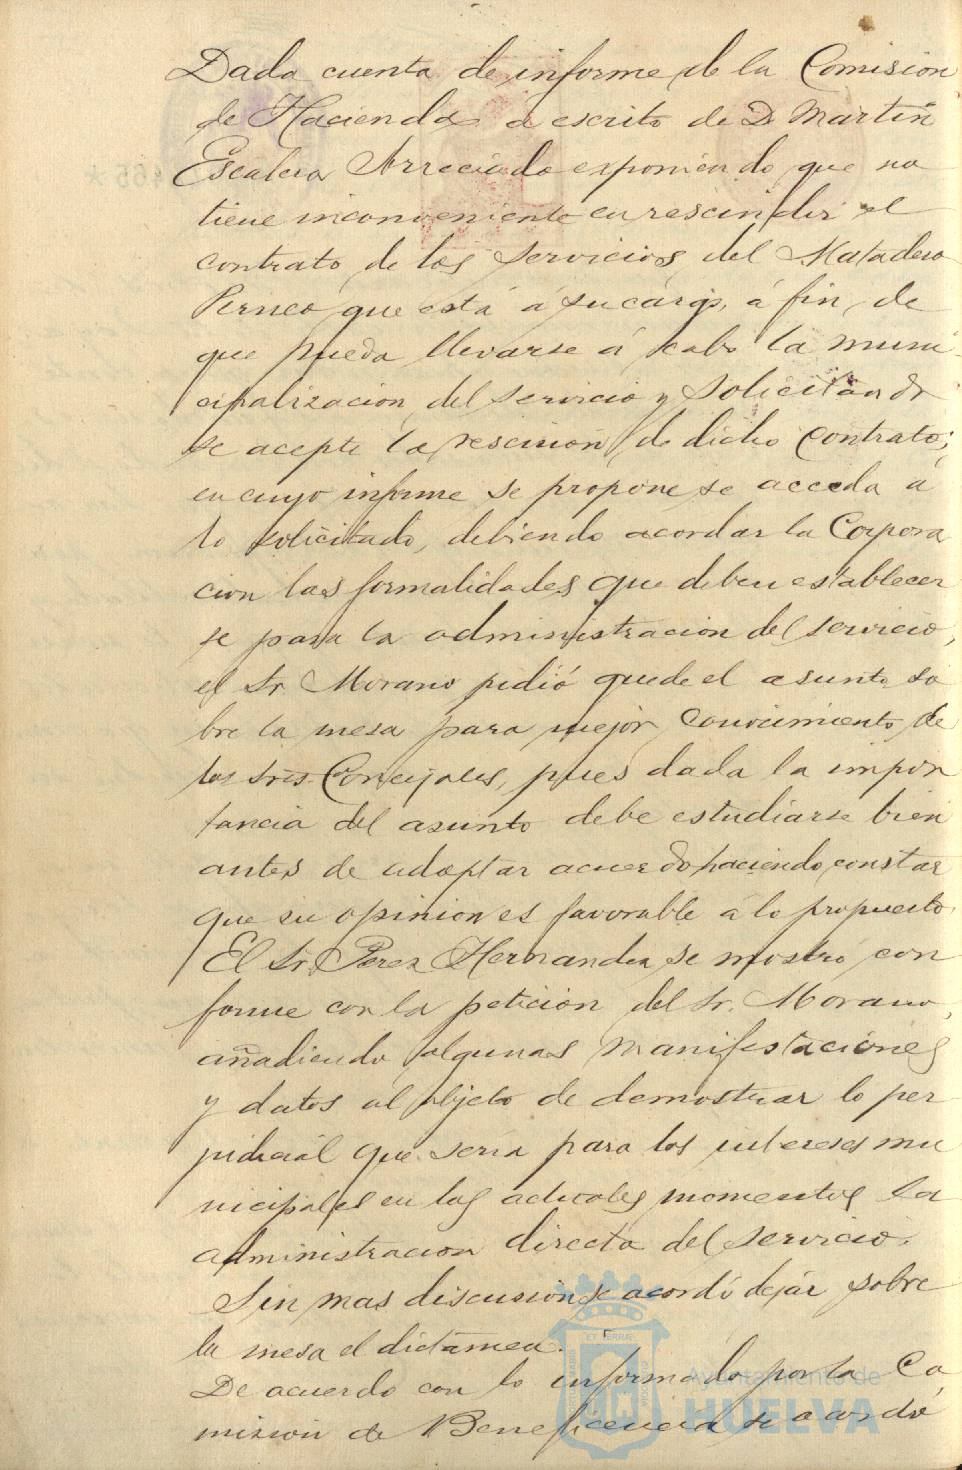 Dada cuenta de informe de la Comision
de Hacienda á escrito de D Martin
Escalera Arreciado exponiendo que no
tiene inconveniente en rescindir el
contrato de los servicios del Matadero
Perneo que está á su cargo, á fin de
que pueda llevarse á cabo la muni-
cipalizacion del servicio y solicitando
se acepte la rescision de dicho contrato;
en cuyo informe se propone se acceda á
lo solicitado, debiendo acordar la Corpora
cion las formalidades que deben establecer
se para la administracion del servicio,
el Sr. Morano pidió quede el asunto so
bre la mesa para mejor conocimiento de
los Sres. Concejales, pues dada la impor
tancia del asunto debe estudiarse bien
antes de adoptar acuerdo haciendo constar
que su opinion es favorable á lo propuesto.
El Sr. Perez Hernandez se mostró con
forme con la peticion del Sr. Morano,
añadiendo algunas manifestaciones
y datos al objeto de demostrar lo per
judicial que seria para los intereses mu
nicipales en los actuales momentos la
administracion directa del servicio.
Sin mas discusion se acordó dejar sobre
la mesa el dictamen.
De acuerdo con lo informado por la Co
mision de Beneficencia se acordó
Ayuntamiento de
HUELVA